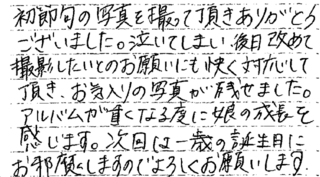 初節句の写真を撮って頂きありがとう
ございました。泣いてしまい、後日改めて
撮影したいとのお願いにも快く対応して
頂き、お気入りの写真が残せました。
アルバムが重くなる度に娘の成長を
感じます。次回は一歳の誕生日に
お邪魔しますのでよろしくお願いします